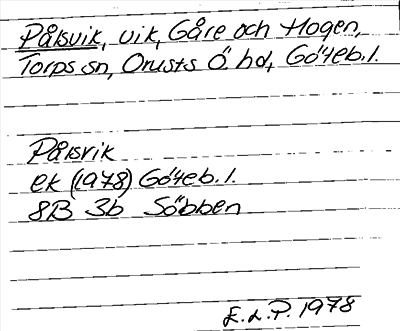 Pålsvik, vik, Gåre och Hogen,
Torps sn, Orusts Ö. hd, Göteb. l.
Pålsvik
ek (1978) Göteb. l.
8B 3b Söbben
E.L.P. 1978